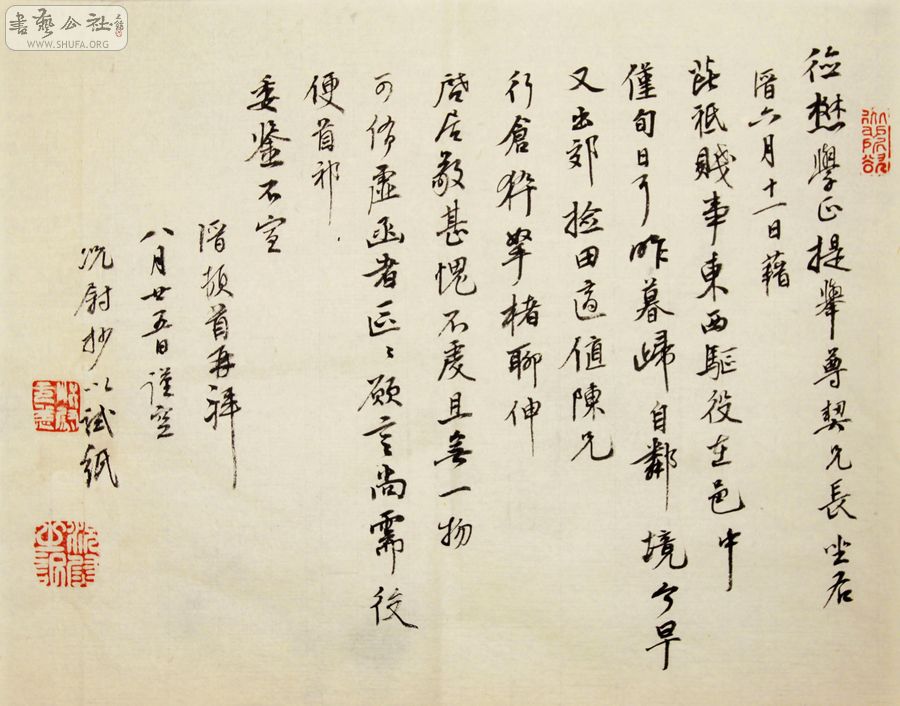 德懋學正提舉尊契兄長坐右
潛六月十一日藉
庇祗賤事東西驅役在邑中
僅旬日耳昨暮歸自鄰境今早
又出郊撿田適值陳兄
行倉猝挐楮聊伸
啓居敬甚愧不虔且無一物
可侑虛函者匹匹願言尚需後
便首祁
委鑒不宣
潛頓首再拜
八月廿五日謹空
沈尉抄以試紙
書藝公社
WWW.SHUFA.ORG